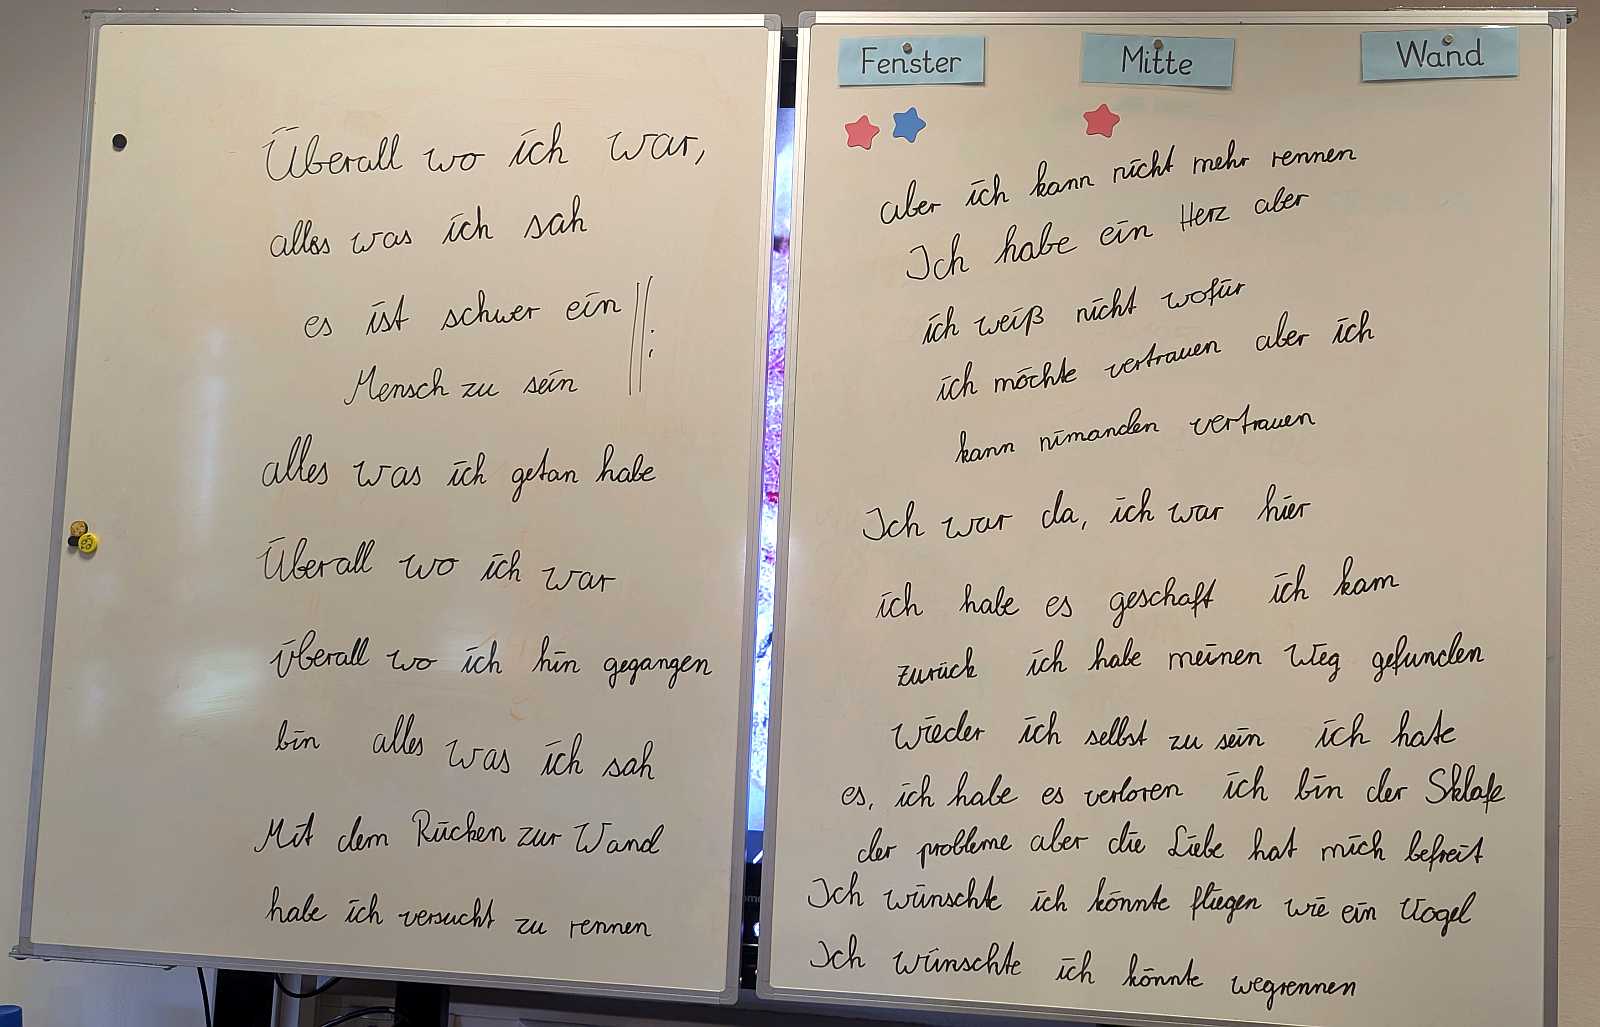 Überall wo ich war,
alles was ich sah
es ist schwer ein ||:
Mensch zu sein
alles was ich getan habe
Überall wo ich war
Überall wo ich hin gegangen
bin alles was ich sah
Mit dem Rücken zur Wand
habe ich versucht zu rennen
Fenster Mitte Wand
aber ich kann nicht mehr rennen
Ich habe ein Herz aber
ich weiß nicht wofür
ich möchte vertrauen aber ich
kann nimanden vertrauen
Ich war da, ich war hier
ich habe es geschaft ich kam
zurück ich habe meinen Weg gefunden
wieder ich selbst zu sein ich hate
es, ich habe es verloren ich bin der Sklafe
der probleme aber die Liebe hat mich befreit
Ich wünschte ich könnte fliegen wie ein Vogel
Ich wünschte ich könnte wegrennen